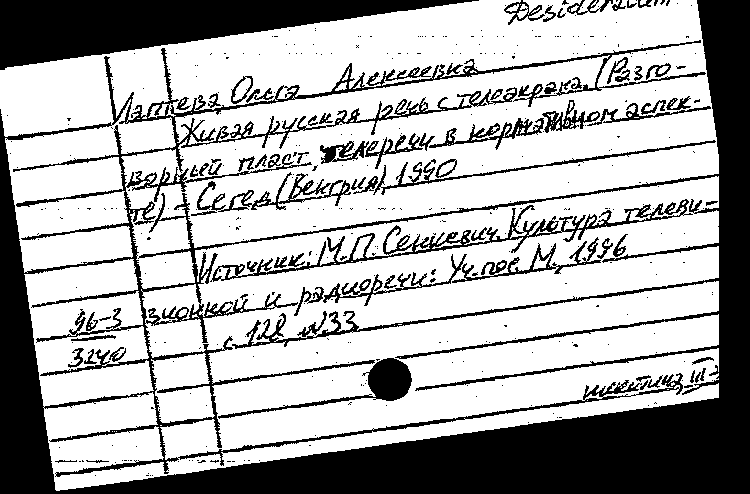 Desideratum
Лаптева Ольга Алексеевна
Живая русская речь с телеэкрана. (Разго-
ворный пласт телеречи в нормативном аспек-
те) - Сегед (Венгрия), 1990
Источник: М.П. Сенкевич. Культура телеви-
зионной и радиоречи: Уч. пос. М., 1996
96-3 с. 128, №33
3240
III-